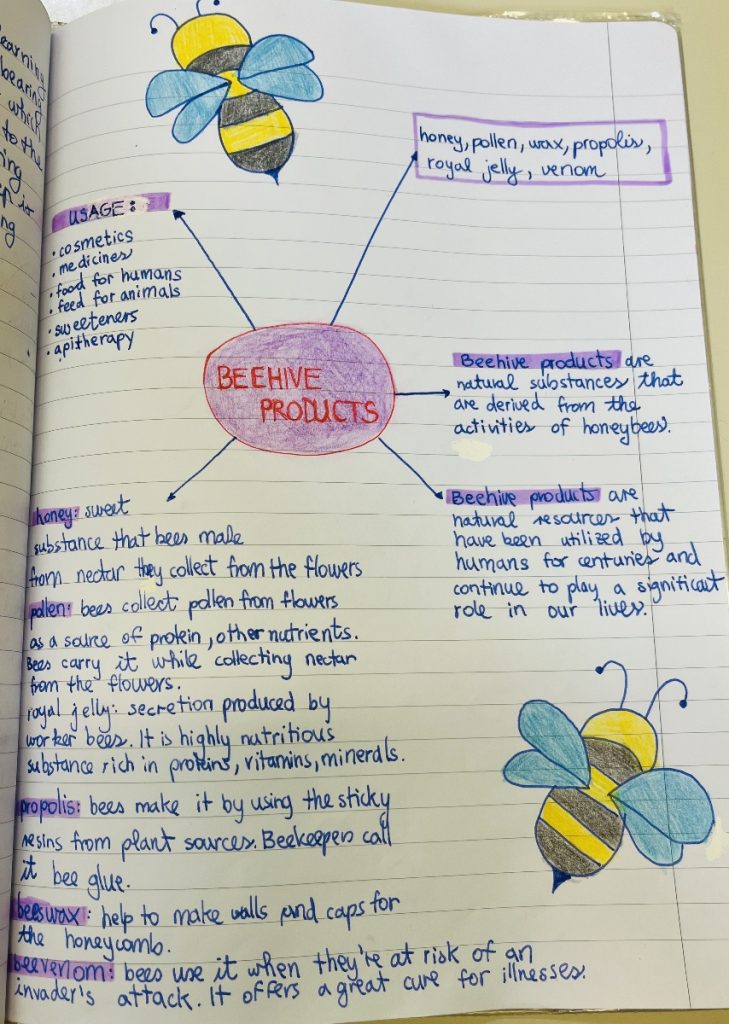 earning
bearing
which
to the
ing
is
ng
honey, pollen, wax, propolis,
royal jelly, venom
USAGE:
• cosmetics
• medicines
• food for humans
• feed for animals
• sweeteners
• apitherapy
BEEHIVE
PRODUCTS
Beehive products are
natural substances that
are derived from the
activities of honeybees.
Beehive products are
natural resources that
have been utilized by
humans for centuries and
continue to play a significant
role in our lives.
honey: sweet
substance that bees make
from nectar they collect from the flowers
pollen: bees collect pollen from flowers
as a source of protein, other nutrients.
Bees carry it while collecting nectar
from the flowers.
royal jelly: secretion produced by
worker bees. It is highly nutritious
substance rich in proteins, vitamins, minerals.
propolis: bees make it by using the sticky
resins from plant sources. Beekeepers call
it bee glue.
beeswax: help to make walls and caps for
the honeycomb.
beevenom: bees use it when they're at risk of an
invader's attack. It offers a great cure for illnesses.